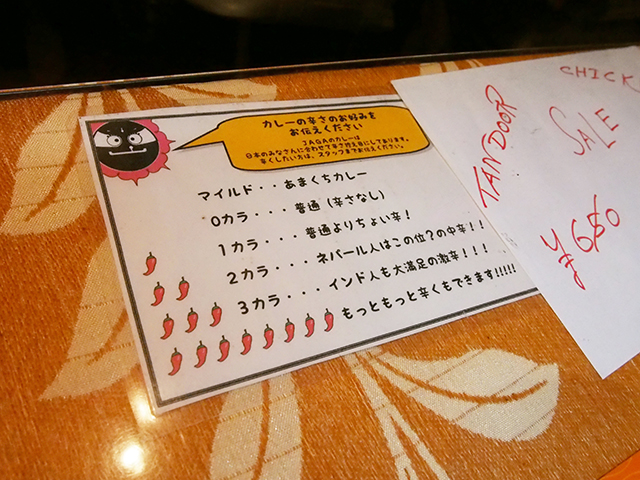 カレーの辛さのお好みを
お伝えください
JAGAのカレーは
日本のみなさんに合わせて辛さ控え目にしてあります。
辛くしたい方は、スタッフまでお伝えください。
マイルド・・あまくちカレー
0カラ・・・普通(辛さなし)
1カラ・・・普通よりちょい辛!
2カラ・・・ネパール人はこの位?の中辛!!
3カラ・・・インド人も大満足の激辛!!!
もっともっと辛くもできます!!!!!
TANDOOR
CHICK
SALE
¥650